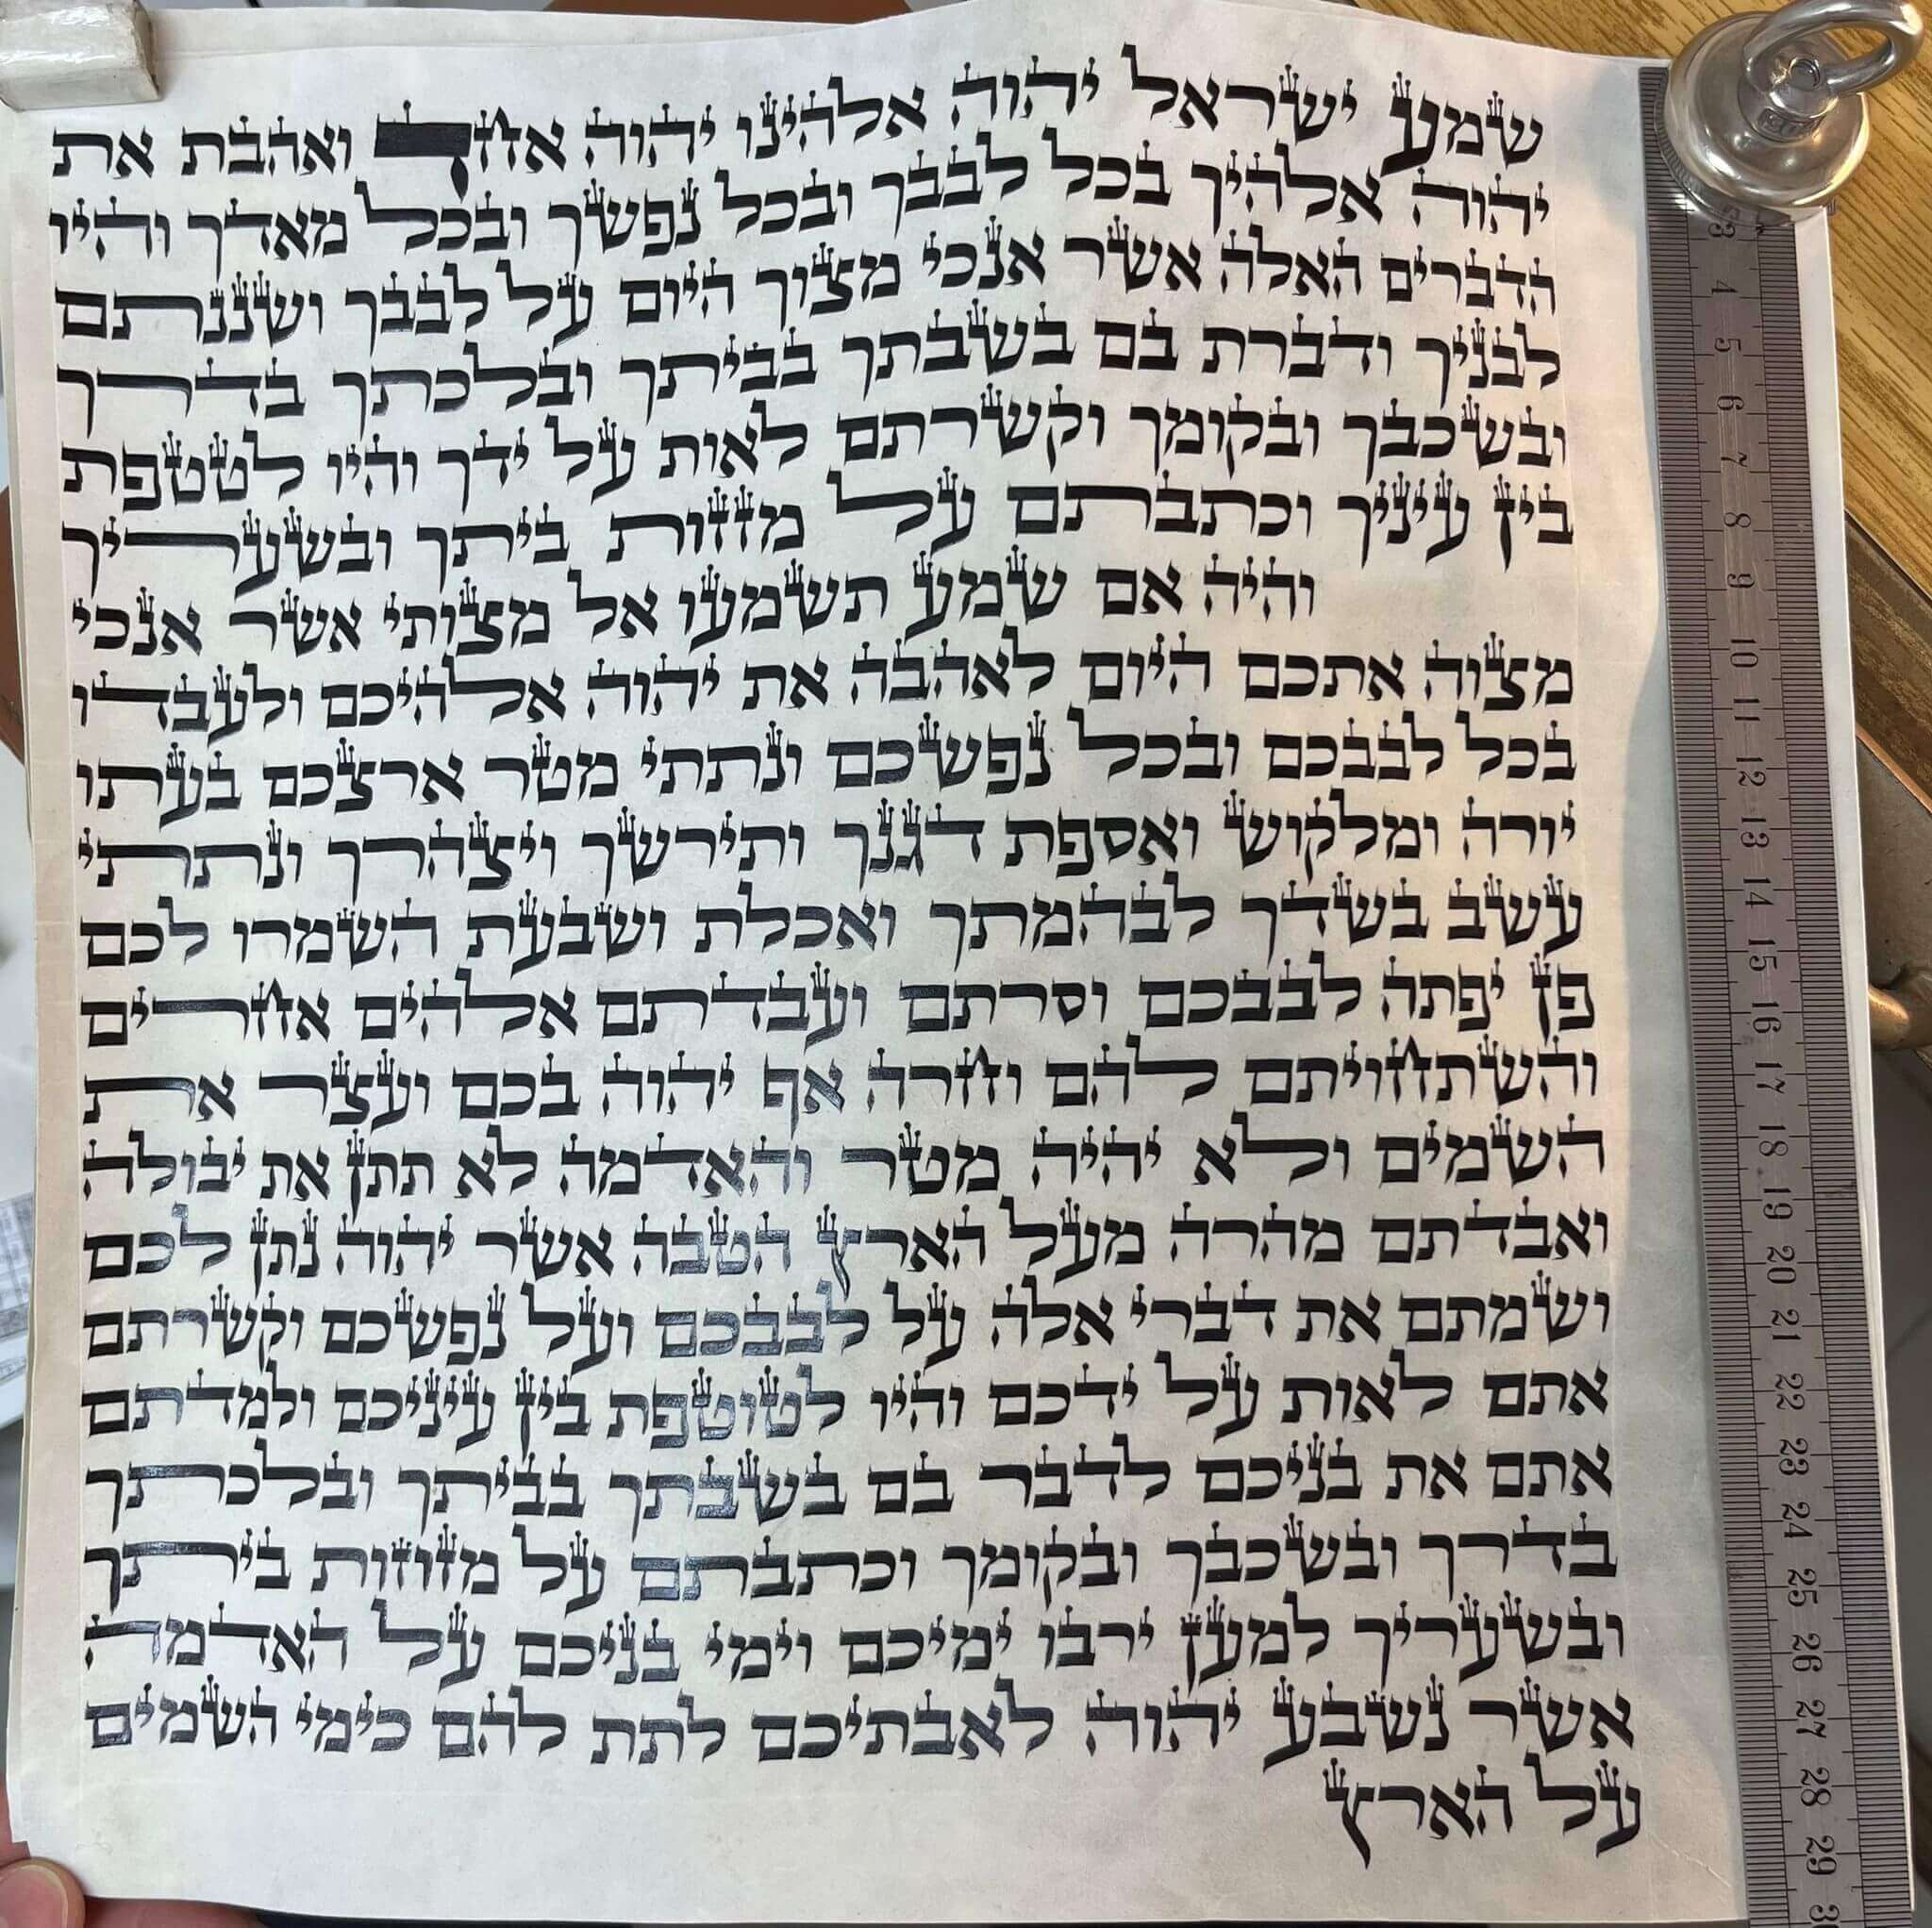 שמע ישראל יהוה אלהינו יהוה אחד ואהבת את
יהוה אלהיך בכל לבבך ובכל נפשך ובכל מאדך והיו
הדברים האלה אשר אנכי מצוך היום על לבבך ושננתם
לבניך ודברת בם בשבתך בביתך ובלכתך בדרך
ובשכבך ובקומך וקשרתם לאות על ידך והיו לטטפת
בין עיניך וכתבתם על מזזות ביתך ובשעריך
והיה אם שמע תשמעו אל מצותי אשר אנכי
מצוה אתכם היום לאהבה את יהוה אלהיכם ולעבדו
בכל לבבכם ובכל נפשכם ונתתי מטר ארצכם בעתו
יורה ומלקוש ואספת דגנך ותירשך ויצהרך ונתתי
עשב בשדך לבהמתך ואכלת ושבעת השמרו לכם
פן יפתה לבבכם וסרתם ועבדתם אלהים אחרים
והשתחויתם להם וחרה אף יהוה בכם ועצר את
השמים ולא יהיה מטר והאדמה לא תתן את יבולה
ואבדתם מהרה מעל הארץ הטבה אשר יהוה נתן לכם
ושמתם את דברי אלה על לבבכם ועל נפשכם וקשרתם
אתם לאות על ידכם והיו לטוטפת בין עיניכם ולמדתם
אתם את בניכם לדבר בם בשבתך בביתך ובלכתך
בדרך ובשכבך ובקומך וכתבתם על מזוזות ביתך
ובשעריך למען ירבו ימיכם וימי בניכם על האדמה
אשר נשבע יהוה לאבתיכם לתת להם כימי השמים
על הארץ
3
4
5
6
7
8
9
10
11
12
13
14
15
16
17
18
19
20
21
22
23
24
25
26
27
28
29